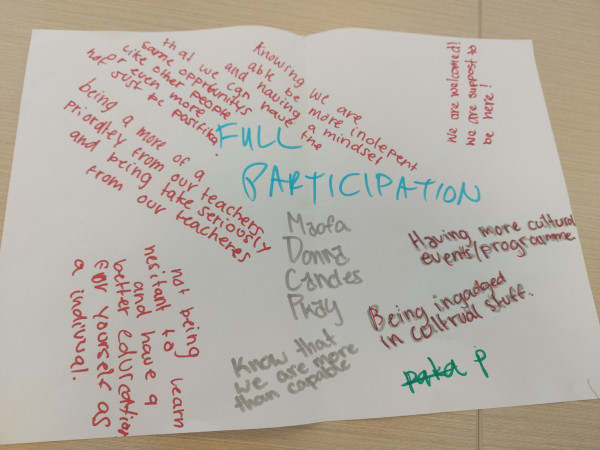 Knowing we are
able be more indepent
and having a mindset
that we can have the
same opportunitys
like other people
or even more
not just be positive.
We are welcomed!
We are suppost to
be here!
being a more of a
prioratey from our teachers
and being take seriously
from our teacheres
FULL
PARTICIPATION
Maofa
Donna
Candes
Pway
Having more cultural
events/programme.
Being ingadged
in colltrual stuff.
Know that
we are more
than capable
not being
hesitant to learn
and have a
better education
FOR Yourself as
a indivual.